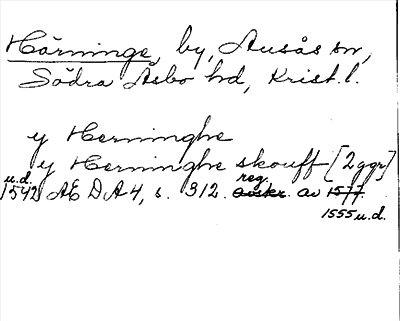 Härninge, by, Ausås sn,
Södra Åsbo hd, Krist. l.
y Herninghe
y Herninghe skouff [2 ggr]
u.d. reg.
1542 AE D A 4, s. 312. avskr. av 1577.
1555 u.d.